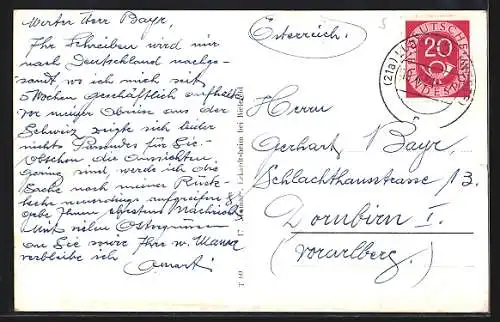 Werter Herr Bayr,
Ihr Schreiben wird mir
nach Deutschland nachge-
sandt wo ich mich seit
5 Wochen geschäftlich aufhalte.
Vor meiner Abreise aus der
Schweiz zeigte sich leider
nichts Passendes für Sie.
Obschon die Aussichten
gering sind, werde ich die
Sache nach meiner Rück-
kehr neuerdings aufgreifen &
gebe Ihnen Nachricht
Mit vielen Ostergrüssen
an Sie sowie Ihre w. Mama
verbleibe ich
Österreich.
Herrn
Gerhart Bayr,
Schlachthausstrasse 13.
Dornbirn I.
(Vorarlberg.)
DEUTSCHE
BUNDESPOST
20
(21a)
Eckardtsheim bei Bielefeld